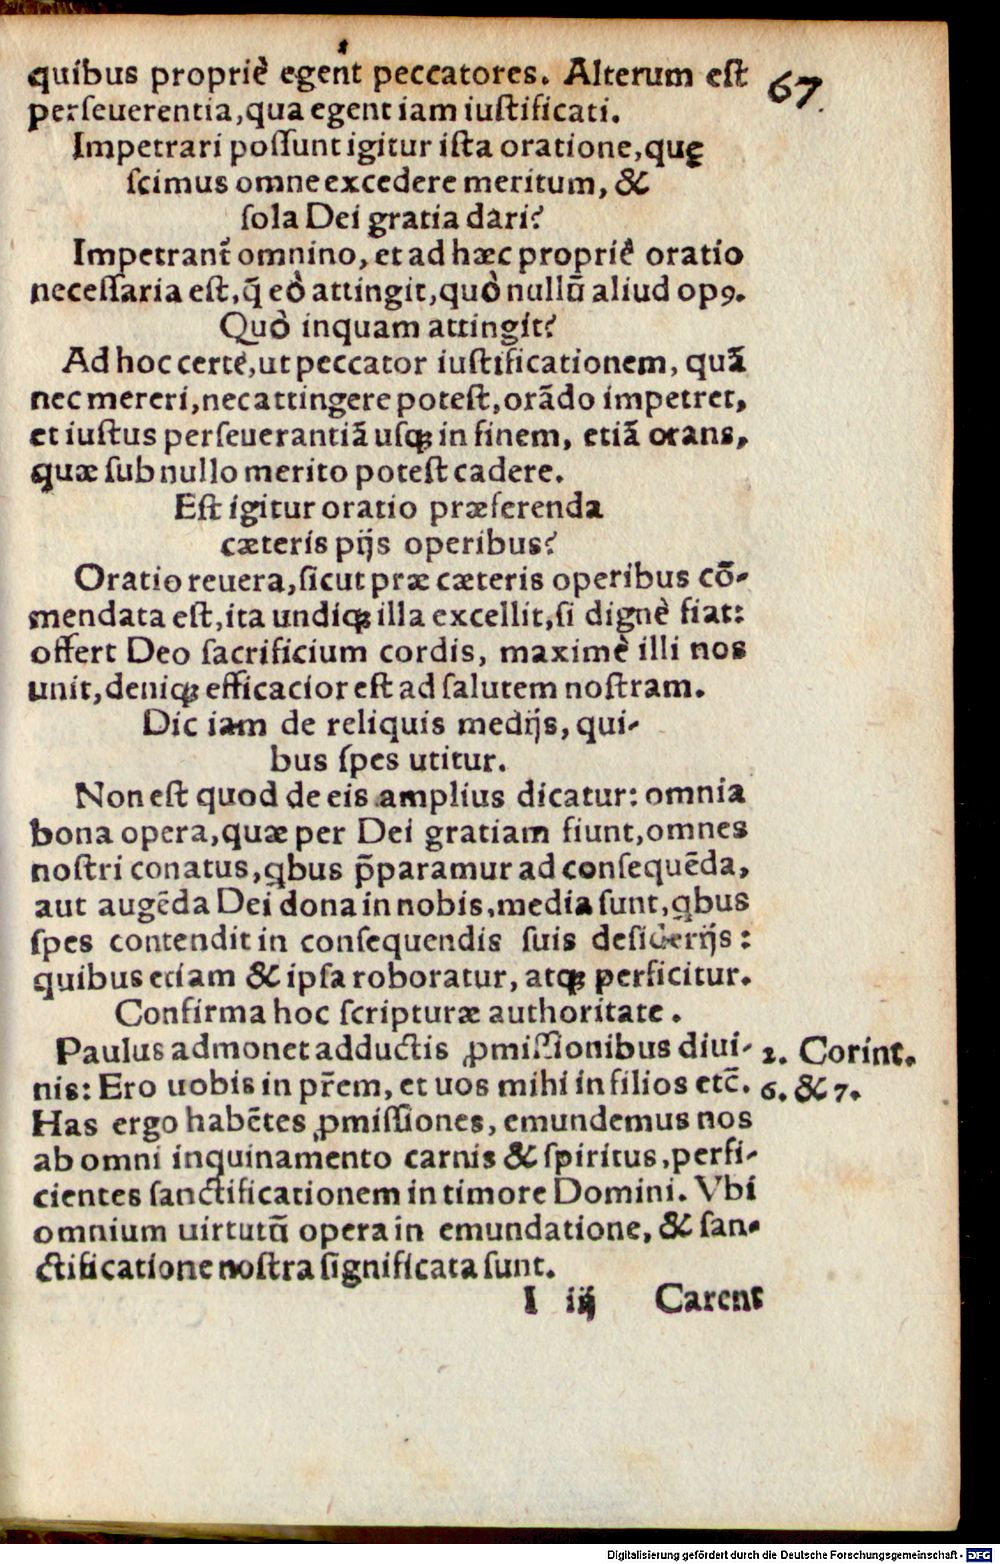 quibus propriè egent peccatores. Alterum est
67.
perseuerentia, qua egent iam iustificati.
Impetrari possunt igitur ista oratione, quę
scimus omne excedere meritum, &
sola Dei gratia dari?
Impetrant omnino, et ad hæc propriè oratio
necessaria est, q̃ eò attingit, quò nullũ aliud opꝰ.
Quò inquam attingit?
Ad hoc certe, ut peccator iustificationem, quã
nec mereri, nec attingere potest, orãdo impetret,
et iustus perseuerantiã usqꝫ in finem, etiã orans,
quæ sub nullo merito potest cadere.
Est igitur oratio præferenda
cæteris pijs operibus?
Oratio reuera, sicut præ cæteris operibus cõ-
mendata est, ita undiqꝫ illa excellit, si dignè fiat:
offert Deo sacrificium cordis, maximè illi nos
unit, deniqꝫ efficacior est ad salutem nostram.
Dic iam de reliquis medijs, qui-
bus spes utitur.
Non est quod de eis amplius dicatur: omnia
bona opera, quæ per Dei gratiam fiunt, omnes
nostri conatus, ꝗbus p̃paramur ad consequẽda,
aut augẽda Dei dona in nobis, media sunt, ꝗbus
spes contendit in consequendis suis desiderijs:
quibus etiam & ipsa roboratur, atqꝫ perficitur.
Confirma hoc scripturæ authoritate.
Paulus admonet adductis ꝓmissionibus diui-
2. Corint.
nis: Ero uobis in pr̃em, et uos mihi in filios etc̃.
6. & 7.
Has ergo habẽtes ꝓmissiones, emundemus nos
ab omni inquinamento carnis & spiritus, perfi-
cientes sanctificationem in timore Domini. Vbi
omnium uirtutũ opera in emundatione, & san-
ctificatione nostra significata sunt.
I iij Carent
Digitalisierung gefördert durch die Deutsche Forschungsgemeinschaft - DFG